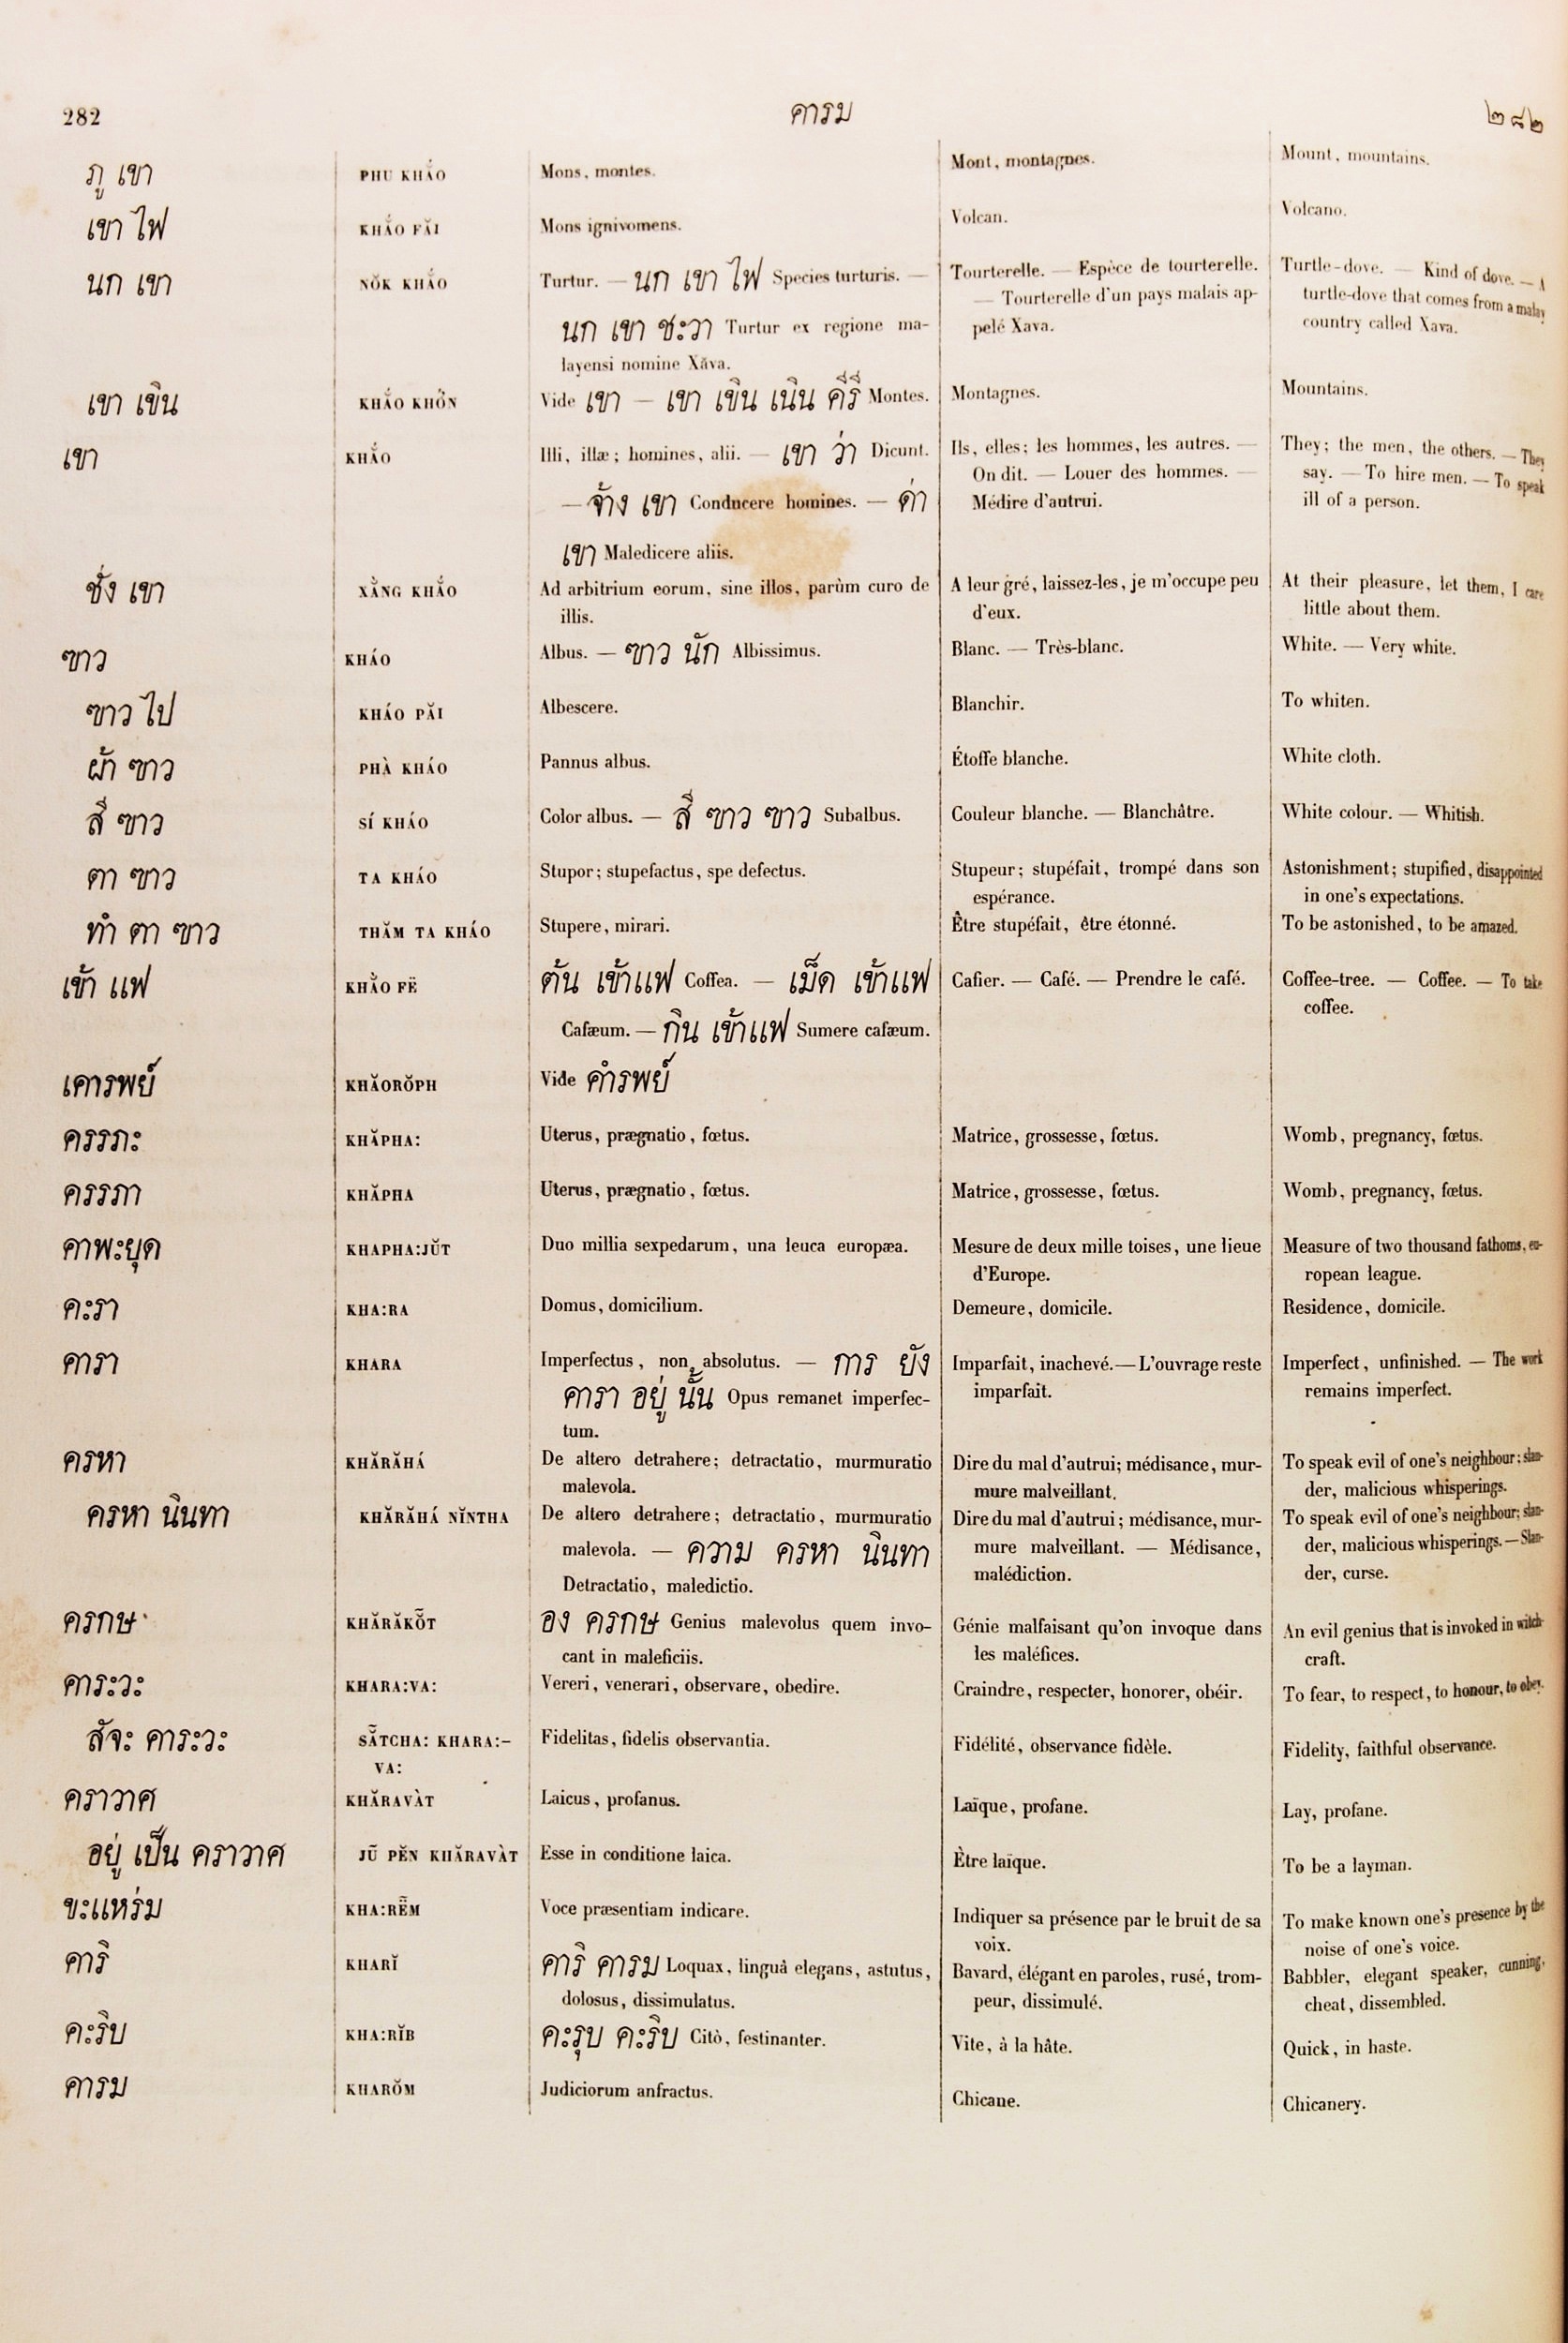 282 คารม ๒๘๒
ภู เขา PHU KHẮO Mons, montes. Mont, montagnes. Mount, mountains.
เขา ไฟ KHẮO FĂI Mons ignivomens. Volcan. Volcano.
นก เขา NŎK KHẮO Turtur. — นก เขา ไฟ Species turturis. — Tourterelle. — Espèce de tourterelle. Turtle-dove. — Kind of dove. — A
นก เขา ชะวา Turtur ex regione ma- — Tourterelle d'un pays malais ap- turtle-dove that comes from a malay
layensi nomine Xăva. pelé Xava. country called Xava.
เขา เขิน KHẮO KHỎN Vide เขา — เขา เขิน เนิน คีรี Montes. Montagnes. Mountains.
เขา KHẮO Illi, illæ; homines, alii. — เขา ว่า Dicunt. Ils, elles; les hommes, les autres. — They; the men, the others. — They
— จ้าง เขา Conducere homines. — ด่า On dit. — Louer des hommes. — say. — To hire men. — To speak
เขา Maledicere aliis. Médire d'autrui. ill of a person.
ชั่ง เขา XẰNG KHẮO Ad arbitrium eorum, sine illos, parùm curo de A leur gré, laissez-les, je m'occupe peu At their pleasure, let them, I care
illis. d'eux. little about them.
ฃาว KHÁO Albus. — ฃาว นัก Albissimus. Blanc. — Très-blanc. White. — Very white.
ฃาว ไป KHÁO PĂI Albescere. Blanchir. To whiten.
ผ้า ฃาว PHÀ KHÁO Pannus albus. Étoffe blanche. White cloth.
สี ฃาว SÍ KHÁO Color albus. — สี ฃาว ฃาว Subalbus. Couleur blanche. — Blanchâtre. White colour. — Whitish.
ตา ฃาว TA KHÁO Stupor; stupefactus, spe defectus. Stupeur; stupéfait, trompé dans son Astonishment; stupified, disappointed
espérance. in one's expectations.
ทำ ตา ฃาว THĂM TA KHÁO Stupere, mirari. Être stupéfait, être étonné. To be astonished, to be amazed.
เข้า แฟ KHẰO FË ต้น เข้าแฟ Coffea. — เม็ด เข้าแฟ Cafier. — Café. — Prendre le café. Coffee-tree. — Coffee. — To take
Cafæum. — กิน เข้าแฟ Sumere cafæum. coffee.
เคารพย์ KHĂORŎPH Vide คำรพย์
ครรภะ KHĂPHA: Uterus, prægnatio, fœtus. Matrice, grossesse, fœtus. Womb, pregnancy, fœtus.
ครรภา KHĂPHA Uterus, prægnatio, fœtus. Matrice, grossesse, fœtus. Womb, pregnancy, fœtus.
คาพะยุด KHAPHA:JŬT Duo millia sexpedarum, una leuca europæa. Mesure de deux mille toises, une lieue Measure of two thousand fathoms, eu-
d'Europe. ropean league.
คะรา KHA:RA Domus, domicilium. Demeure, domicile. Residence, domicile.
คารา KHARA Imperfectus, non absolutus. — การ ยัง Imparfait, inachevé. — L'ouvrage reste Imperfect, unfinished. — The work
คารา อยู่ นั้น Opus remanet imperfec- imparfait. remains imperfect.
tum.
ครหา KHĂRĂHÁ De altero detrahere; detractatio, murmuratio Dire du mal d'autrui; médisance, mur- To speak evil of one's neighbour; slan-
malevola. mure malveillant. der, malicious whisperings.
ครหา นินทา KHĂRĂHÁ NĬNTHA De altero detrahere; detractatio, murmuratio Dire du mal d'autrui; médisance, mur- To speak evil of one's neighbour; slan-
malevola. — ความ ครหา นินทา mure malveillant. — Médisance, der, malicious whisperings. — Slan-
Detractatio, maledictio. malédiction. der, curse.
ครกษ KHĂRĂKŎ̃T อง ครกษ Genius malevolus quem invo- Génie malfaisant qu'on invoque dans An evil genius that is invoked in witch-
cant in maleficiis. les maléfices. craft.
คาระวะ KHARA:VA: Vereri, venerari, observare, obedire. Craindre, respecter, honorer, obéir. To fear, to respect, to honour, to obey.
สัจะ คาระวะ SẴTCHA: KHARA:- Fidelitas, fidelis observantia. Fidélité, observance fidèle. Fidelity, faithful observance.
VA:
คราวาศ KHĂRAVÀT Laicus, profanus. Laïque, profane. Lay, profane.
อยู่ เป็น คราวาศ JŨ PĔN KHĂRAVÀT Esse in conditione laica. Être laïque. To be a layman.
ขะแหร่ม KHA:RË̃M Voce præsentiam indicare. Indiquer sa présence par le bruit de sa To make known one's presence by the
voix. noise of one's voice.
คาริ KHARĬ คาริ คารม Loquax, linguâ elegans, astutus, Bavard, élégant en paroles, rusé, trom- Babbler, elegant speaker, cunning,
dolosus, dissimulatus. peur, dissimulé. cheat, dissembled.
คะริบ KHA:RĬB คะรุบ คะริบ Citò, festinanter. Vite, à la hâte. Quick, in haste.
คารม KHARŎM Judiciorum anfractus. Chicane. Chicanery.